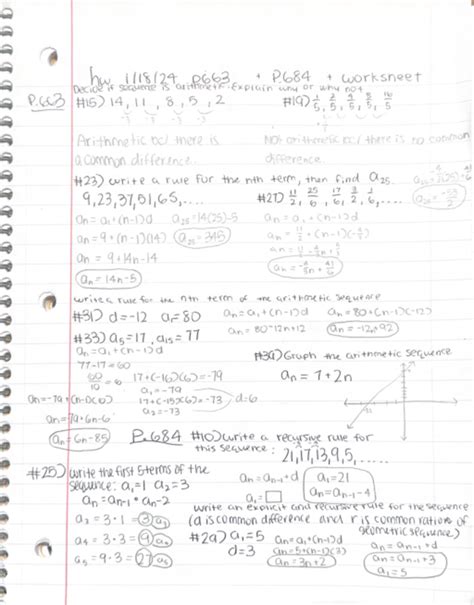 hw 1/18/24 p663 + p.684 + worksheet
Decide if sequence is arithmetic. Explain why or why not
P.663 #15) 14, 11, 8, 5, 2
#19)
Arithmetic bc/ there is
a common difference.
Not arithmetic bc/ there is no common
difference.
#23) write a rule for the nth term, then find a25.
9, 23, 37, 51, 65, ....
an = a1+(n-1)d a25 = 14(25)-5
an = 9+(n-1)(14) a25 = 345
an = 9+14n-14
an = 14n-5
an = a1+(n-1)d
write a rule for the nth term of the arithmetic sequence
#31) d=-12 a1=80 an=a1+(n-1)d an=80+(n-1)(-12)
an=80-12n+12 an=-12n+92
#33) a5=17, a15=77
an=a1+(n-1)d
77-17=60
60/10=6
a1=-79
a2=-73
d=6
an=-79+(n-1)(6)
an=-79+6n-6
an=6n-85
#39) Graph the arithmetic sequence
an=7+2n
P.684 #10) write a recursive rule for
this sequence: 21,17,13,9,5,.....
an=an-1+d
a1=
a1=21
an=an-1-4
#25) write the first 5 terms of the
sequence: a1=1 a2=3
an=an-1•an-2
a3=3•1=3 a3
a4=3•3=9 a4
a5=9•3=27 a5
write an explicit and recursive rule for the sequence
(d is common difference and r is common ration of
geometric sequence)
a1=5
d=3
an=a1+(n-1)d
an=5+(n-1)(3)
an=3n+2
an=an-1+d
an=an-1+3
a1=5